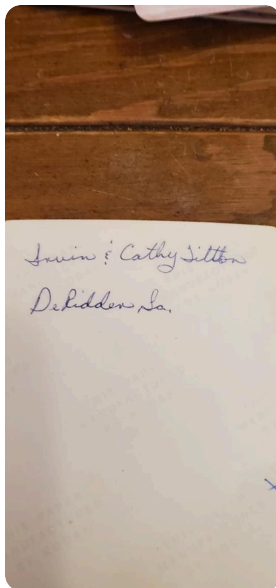 Irvin & Cathy Tilton
DeRidder, La.